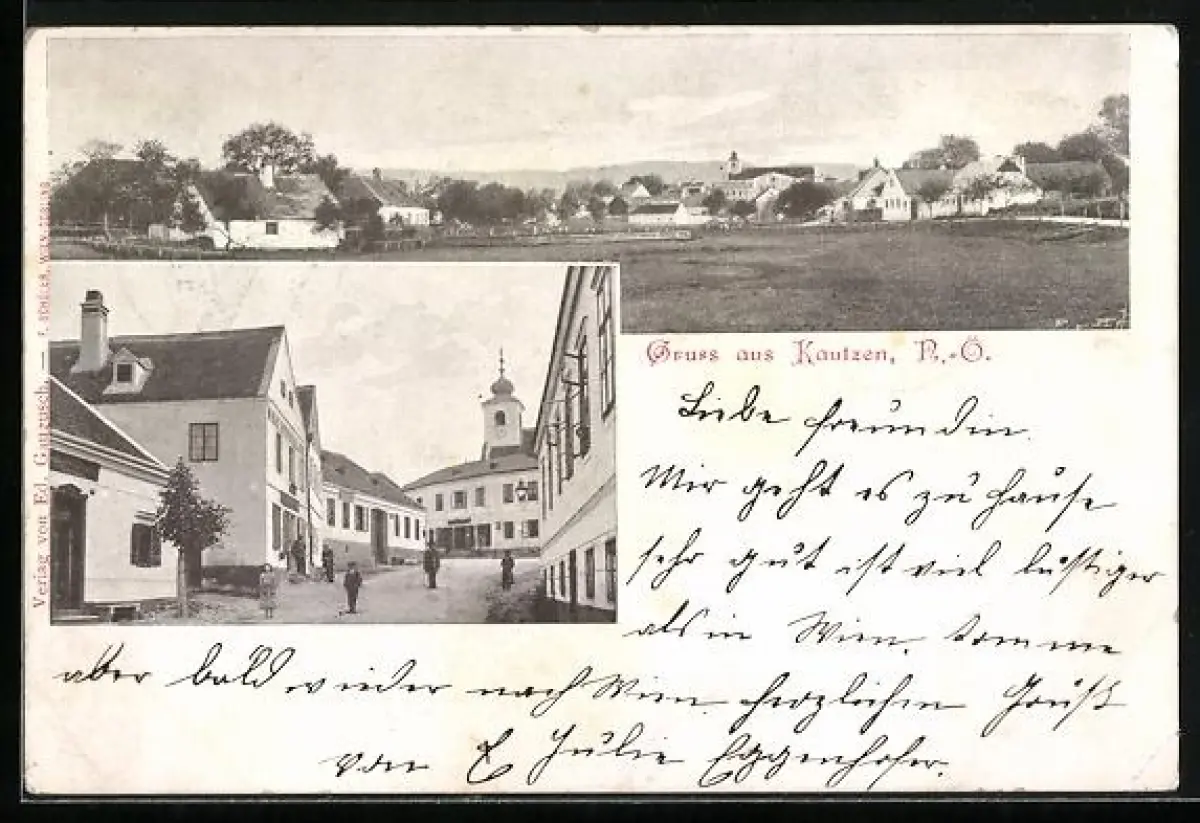 Gruss aus Kautzen, N.-Ö.
Liebe Freundin
Mir geht es zu Hause
sehr gut ist viel lustiger
als in Wien. komme
aber bald wieder nach Wien herzlichen Gruß
von Julie Eggenhofer.
Verlag von Ed. Gauguşch. — F. SCHÜLER, WIEN